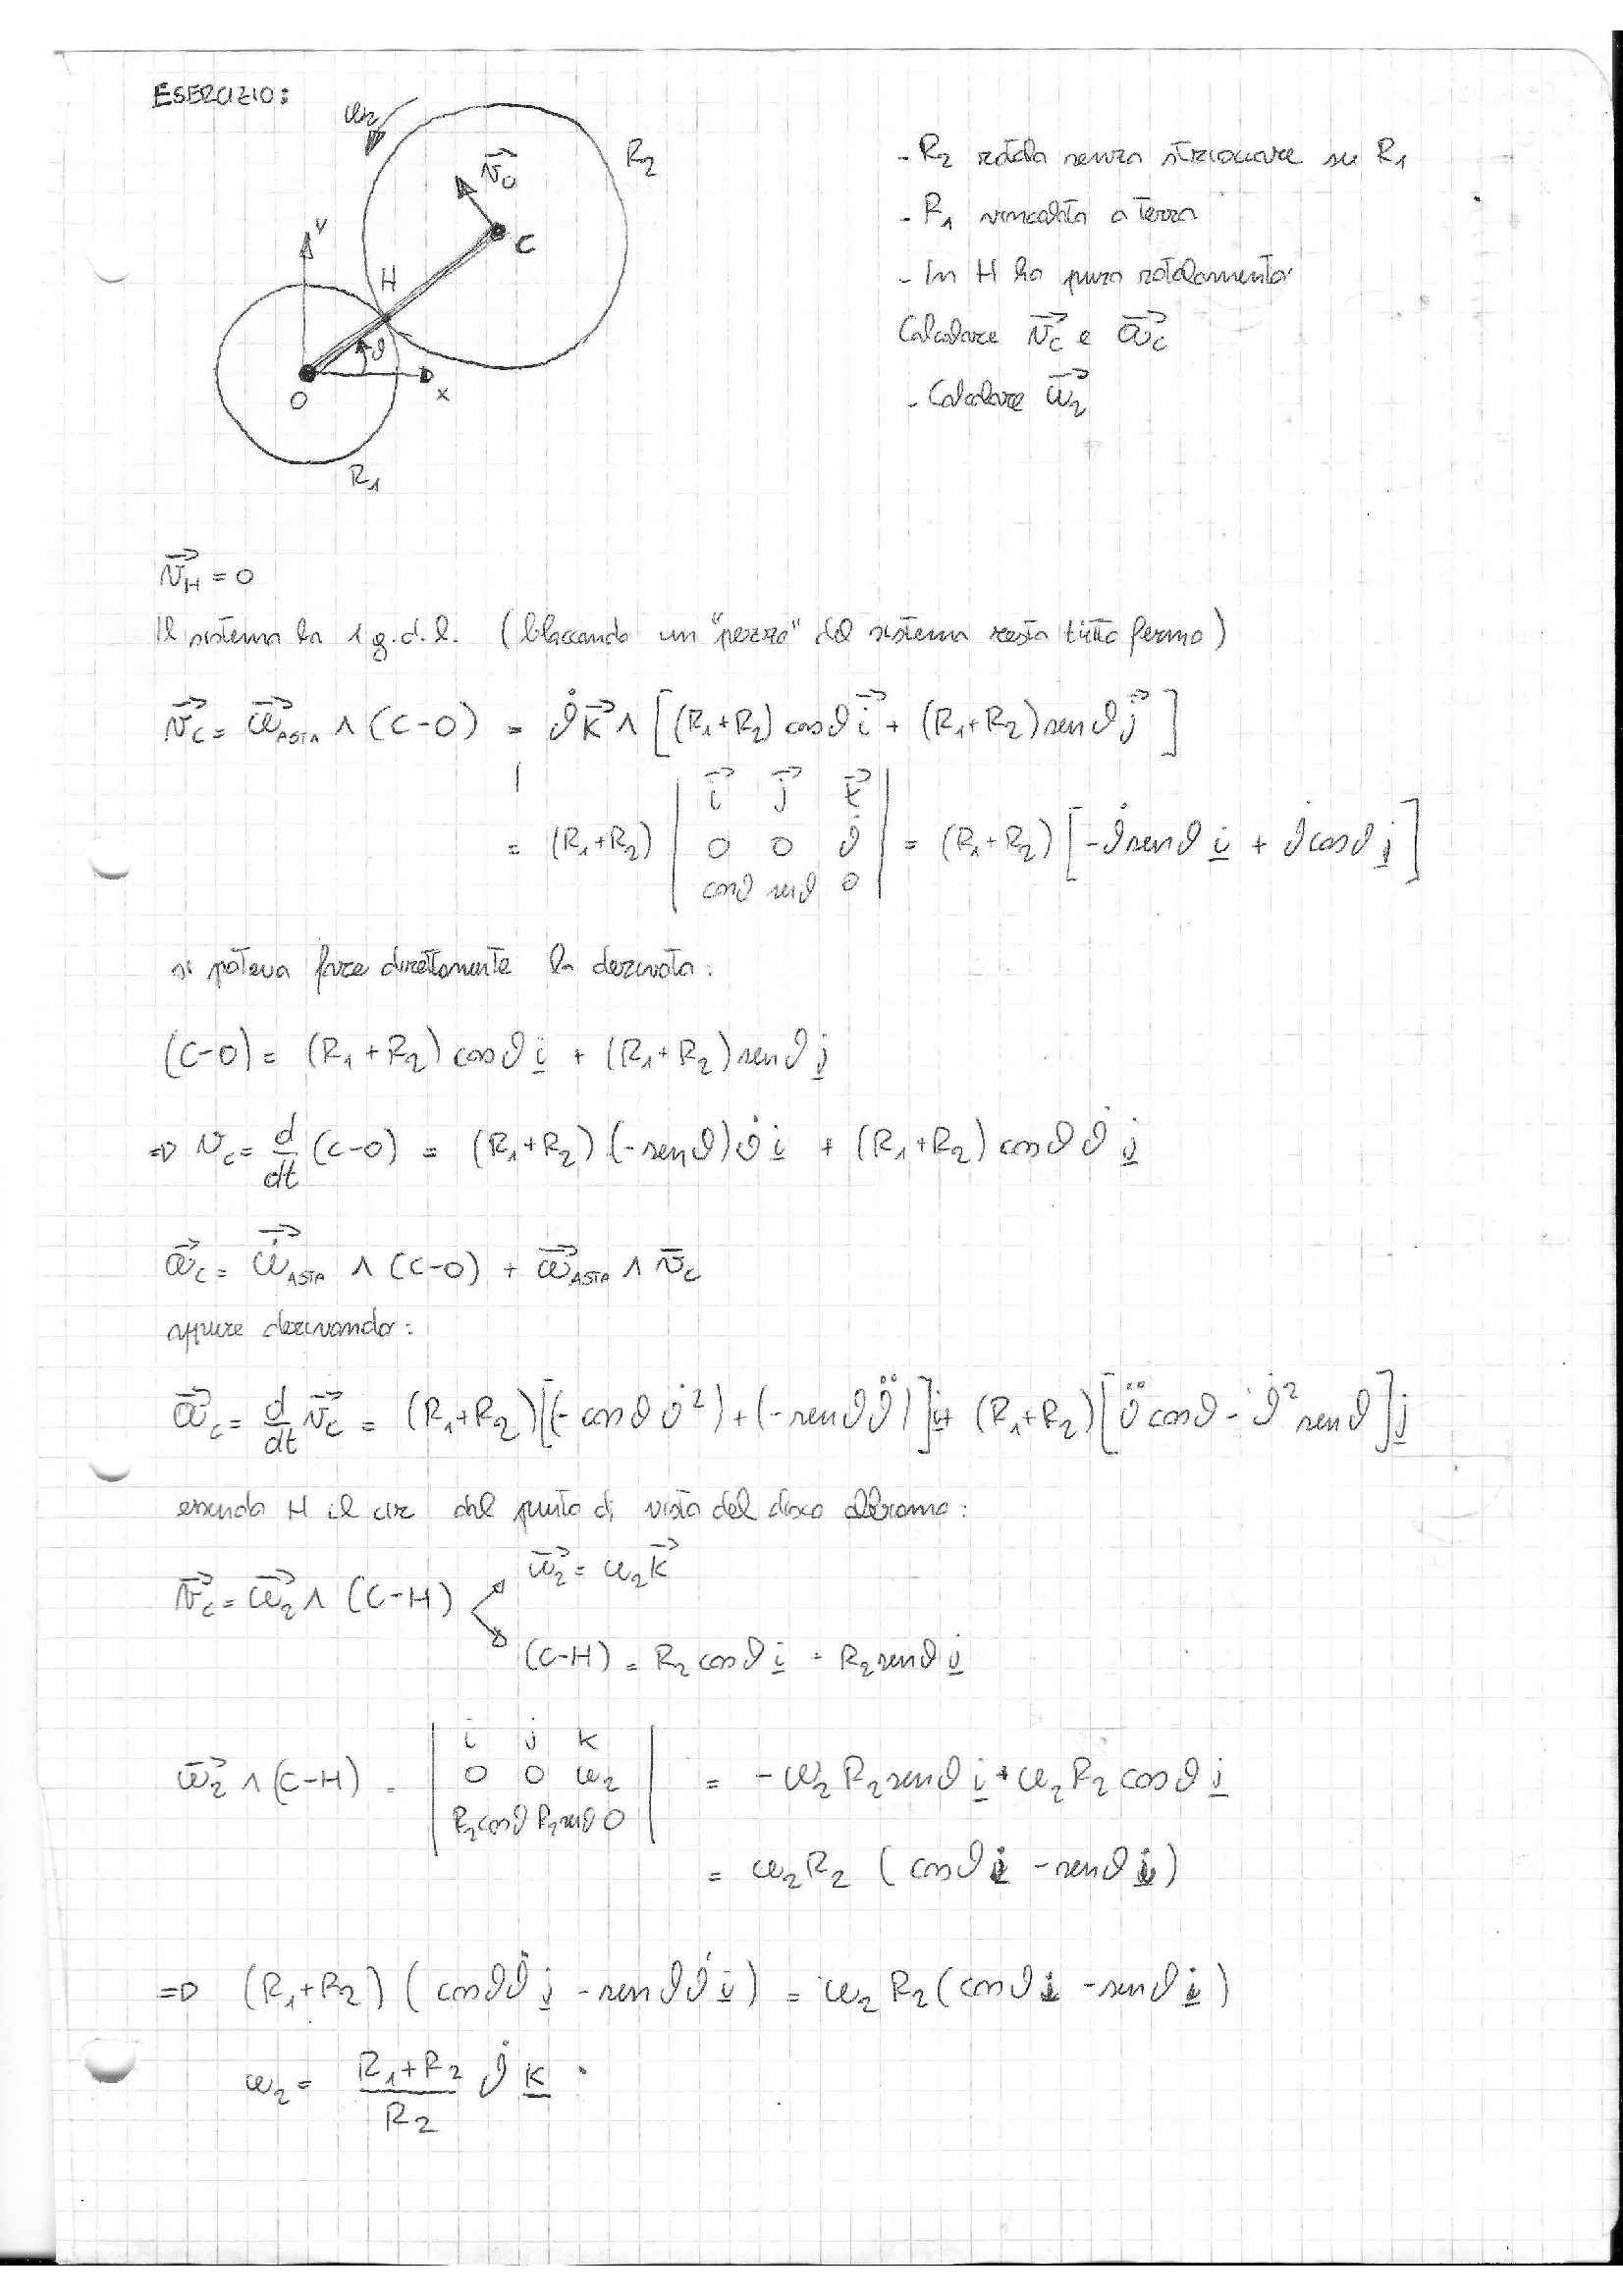 ESERCIZIO:
ω₂
R₂
v⃗c
C
y
H
ϑ
O
x
R₁
- R₂ rotola senza strisciare su R₁
- R₁ vincolata a terra
- In H ho puro rotolamento
Calcolare v⃗c e a⃗c
- Calcolare ω⃗₂
v⃗H = 0
Il sistema ha 1 g.d.l. (bloccando un "pezzo" del sistema resta tutto fermo)
v⃗c = ω⃗ASTA ∧ (C-O) = ϑ̇ k⃗ ∧ [(R₁+R₂) cosϑ i⃗ + (R₁+R₂) senϑ j⃗]
= (R₁+R₂) | i⃗ j⃗ k⃗ | = (R₁+R₂) [-ϑ̇ senϑ i + ϑ̇ cosϑ j]
0 0 ϑ̇
cosϑ senϑ 0
si poteva fare direttamente la derivata:
(C-O) = (R₁+R₂) cosϑ i + (R₁+R₂) senϑ j
⇒ vc = d/dt (C-O) = (R₁+R₂) (-senϑ) ϑ̇ i + (R₁+R₂) cosϑ ϑ̇ j
a⃗c = ω⃗̇ASTA ∧ (C-O) + ω⃗ASTA ∧ v̄c
oppure derivando:
a⃗c = d/dt v⃗c = (R₁+R₂) [(-cosϑ ϑ̇²) + (-senϑ ϑ̈)] i + (R₁+R₂) [ϑ̈ cosϑ - ϑ̇² senϑ] j
essendo H il cir dal punto di vista del disco abbiamo:
ω⃗₂ = ω₂ k⃗
v⃗c = ω⃗₂ ∧ (C-H)
(C-H) = R₂ cosϑ i - R₂ senϑ j
i j k
ω⃗₂ ∧ (C-H) = | 0 0 ω₂ | = -ω₂ R₂ senϑ i + ω₂ R₂ cosϑ j
R₂cosϑ R₂senϑ 0
= ω₂ R₂ (cosϑ j - senϑ i)
⇒ (R₁+R₂) (cosϑ ϑ̇ j - senϑ ϑ̇ i) = ω₂ R₂ (cosϑ j - senϑ i)
ω₂ = (R₁+R₂)/R₂ ϑ̇ k